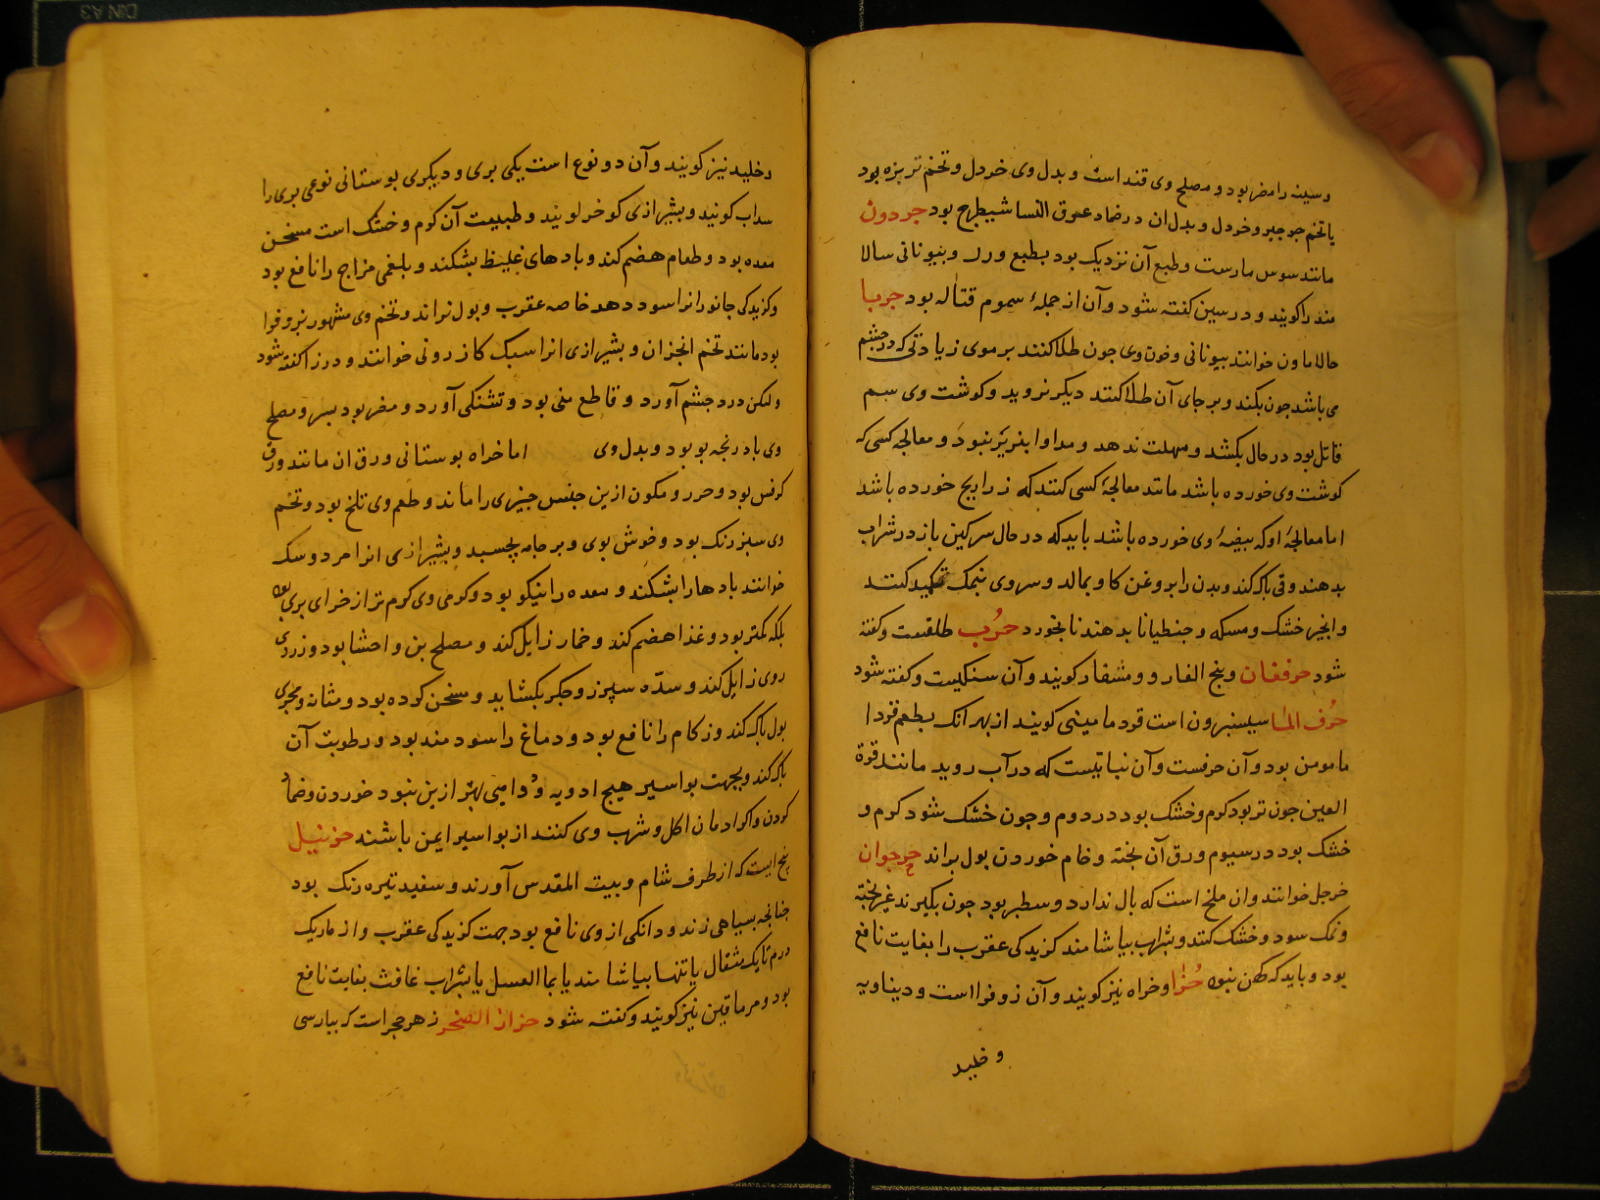 و سینه را مضر بود و مصلح وی قند است و بدل وی خردل و تخم تربزه بود
یا تخم جرجیر و خردل و بدل ان در ضماد عرق النسا شیطرج بود جردون
مانند سوس مارست و طبع آن نزدیک بود بطبع ورل و بیونانی سالا
مندرا کویند و در سین کفته شود و آن از جملهٔ سموم قتاله بود حربا
حالاماون خوانند بیونانی و خون وی جون طلا کنند بر موی زیادتی که در چشم
می باشد جون بکند و بر جای آن طلا کنند دیکر نروید و کوشت وی سم
قاتل بود در حال بکشد و مهلت ندهد و مداوا پذیر نبود و معالجه کسی که
کوشت وی خورده باشد مانند معالجهٔ کسی کنند که زراریح خورده باشد
اما معالجهٔ او که بیضهٔ وی خورده باشد باید که در حال سرکین باز در شراب
بدهند و قی پاک کند و بدن را بروغن کاو بمالد و سر وی بنمک تکمید کنند
و انجیر خشک و مسکه و جنطیانا بدهند تا بخورد حرب طلقست و کفته
شود حرفقان و بنج الفار و و مشفار کویند و آن سنکیست و کفته شود
حرف الما سیسنبرون است قردمامینی کویند از بهر انک بطعم قردا
مامومن بود و آن حرفست و آن نباتیست که در آب روید مانند قرة
العین جون تر بود کرم و خشک بود در دوم و جون خشک شود کرم و
خشک بود در سیوم ورق آن پخته و خام خوردن بول براند حرجوان
خرجل خوانند و ان ملخ است که بال ندارد و سطبر بود جون بکیرند غیر پخته
و نمک سود و خشک کنند و بشراب بیاشامند کزیدکی عقرب را بغایت نافع
بود و باید که کهن نبود حزا و خراه نیز کویند و آن زوفرا است و دیناویه
و خلید
و خلید نیز کویند و آن دو نوع است یکی بری و دیکری بوستانی نوعی بری را
سداب کویند و بشیرازی کوخرلویند و طبیعت آن کرم و خشک است مسخن
معده بود و طعام هضم کند و بادهای غلیظ بشکند و بلغمی مزاج را نافع بود
و کزیدکی جانوران را سود دهد خاصه عقرب و بول براند و تخم وی مشهور بزوفرا
بود مانند تخم انجزان و بشیرازی انرا سبک کازرونی خوانند و در زا کفته شود
ولکن درد چشم آورد و قاطع منی بود و تشنکی آورد و مضر بود بسر و مصلح
وی بادرنجه بویه بود و بدل وی اما خراه بوستانی ورق ان مانند ورق
کرفس بود و حرر و مکون ازین جنس چیزی را ماند و طعم وی تلخ بود و تخم
وی سبز رنک بود و خوش بوی و بر جامه بچسبد و بشیرازی انرا مردوسک
خوانند بادها را بشکند و معده را نیکو بود و کرمی وی کرم تر از خرای بری بود
بلکه کمتر بود و غذا هضم کند و خمار زایل کند و مصلح بدن و احشا بود و زردی
روی زایل کند و سدّه سپرز و جکر بکشاید و مسخن کرده بود و مثانه و مجری
بول پاک کند و زکام را نافع بود و دماغ را سودمند بود و رطوبت آن
پاک کند و بجهت بواسیر هیچ ادویه و دوامی بهتر ازین نبود خوردن و ضماد
کردن و اکراد مان اکل و شرب وی کنند از بواسیر ایمن باشند حزنبل
بیخ ایست که از طرف شام و بیت المقدس آورند و سفید تیره رنک بود
جنانجه بسیاهی زند و دانکی از وی نافع بود جهت کزیدکی عقرب و از مار یک
درم تا یک مثقال یا تنها بیاشامند یا بما العسل یا بشراب غافث بغایت نافع
بود و مرماقین نیز کویند و کفته شود حزاز الصخر زهر حجر است که بپارسی